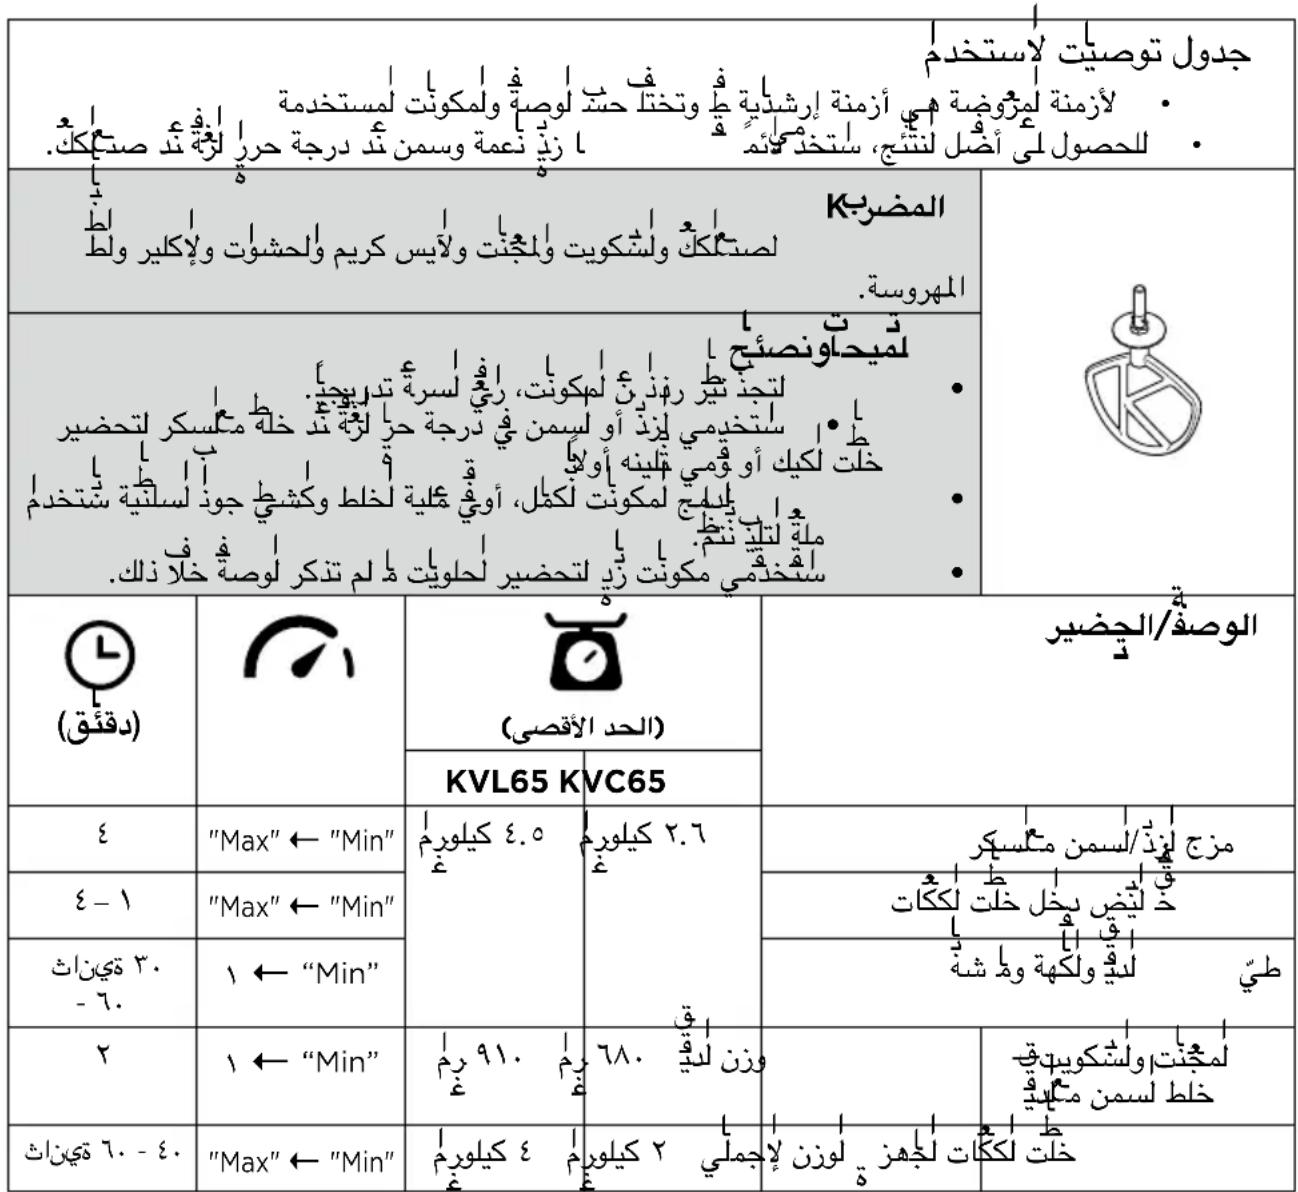 جدول توصيات الاستخدام
• الأزمنة المعروضة هي أزمنة إرشادية فقط وتختلف حسب الوصفة والمكونات المستخدمة
• للحصول على أفضل النتائج، استخدمي دائمًا زبدة ناعمة وسمن عند درجة حرارة الغرفة عند صنع الكعك.
المضرب K
لصنع الكعك والبسكويت والمعجنات والآيس كريم والحشوات والإكلير والبطاطا
المهروسة.
تلميحات ونصائح
• لتجنب تناثر رذاذ من المكونات، ارفعي السرعة تدريجيًا.
• استخدمي الزبد أو السمن في درجة حرارة الغرفة عند خلطه مع السكر لتحضير
خلطات الكيك أو قومي بتليينه أولاً.
• لدمج المكونات بالكامل، أوقفي عملية الخلط وكشطي جوانب السلطانية باستخدام
ملعقة التقليب بانتظام.
• استخدمي مكونات باردة لتحضير الحلويات ما لم تذكر الوصفة خلاف ذلك.
الوصفة/التحضير
(الحد الأقصى)
١
(دقائق)
KVL65 KVC65
مزج الزبد/السمن مع السكر ٢.٦ كيلوغرام ٤.٥ كيلوغرام "Min" ← "Max" ٤
خفق البيض داخل خلطات الكعكات "Min" ← "Max" ١ – ٤
طيّ الدقيق والفاكهة وما شابه “Min” ← ١ ٣٠ - ٦٠ ثانية
المعجنات والبسكويت - خلط السمن مع الدقيق وزن الدقيق ٦٨٠ غرام ٩١٠ غرام “Min” ← ١ ٢
خلطات الكعكات الجاهزة الوزن الإجمالي ٢ كيلوغرام ٤ كيلوغرام "Min" ← "Max" ٤٠ - ٦٠ ثانية